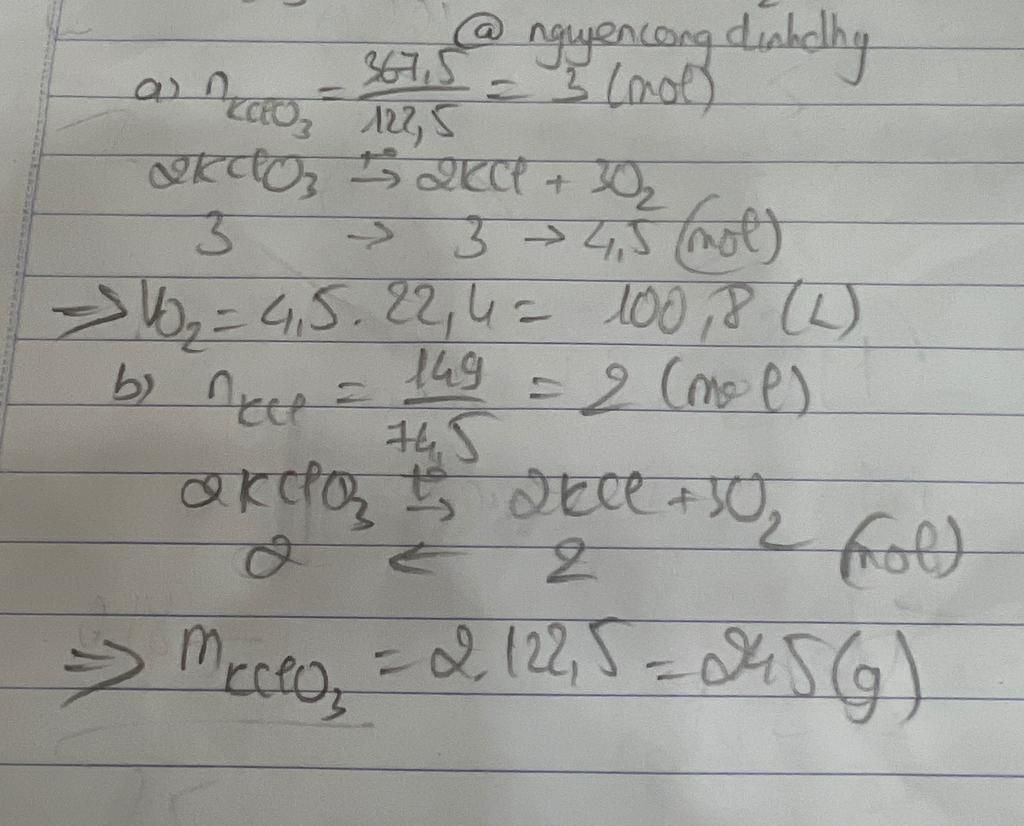 @ nguyencongdinhdhy
a) nKClO₃ = 367,5/122,5 = 3 (mol)
2KClO₃ t° → 2KCl + 3O₂
3 → 3 → 4,5 (mol)
=> VO₂ = 4,5. 22,4 = 100,8 (L)
b) nKCl = 149/74,5 = 2 (mol)
2KClO₃ t° → 2KCl + 3O₂
2 ← 2 (mol)
=> mKClO₃ = 2.122,5 = 245 (g)